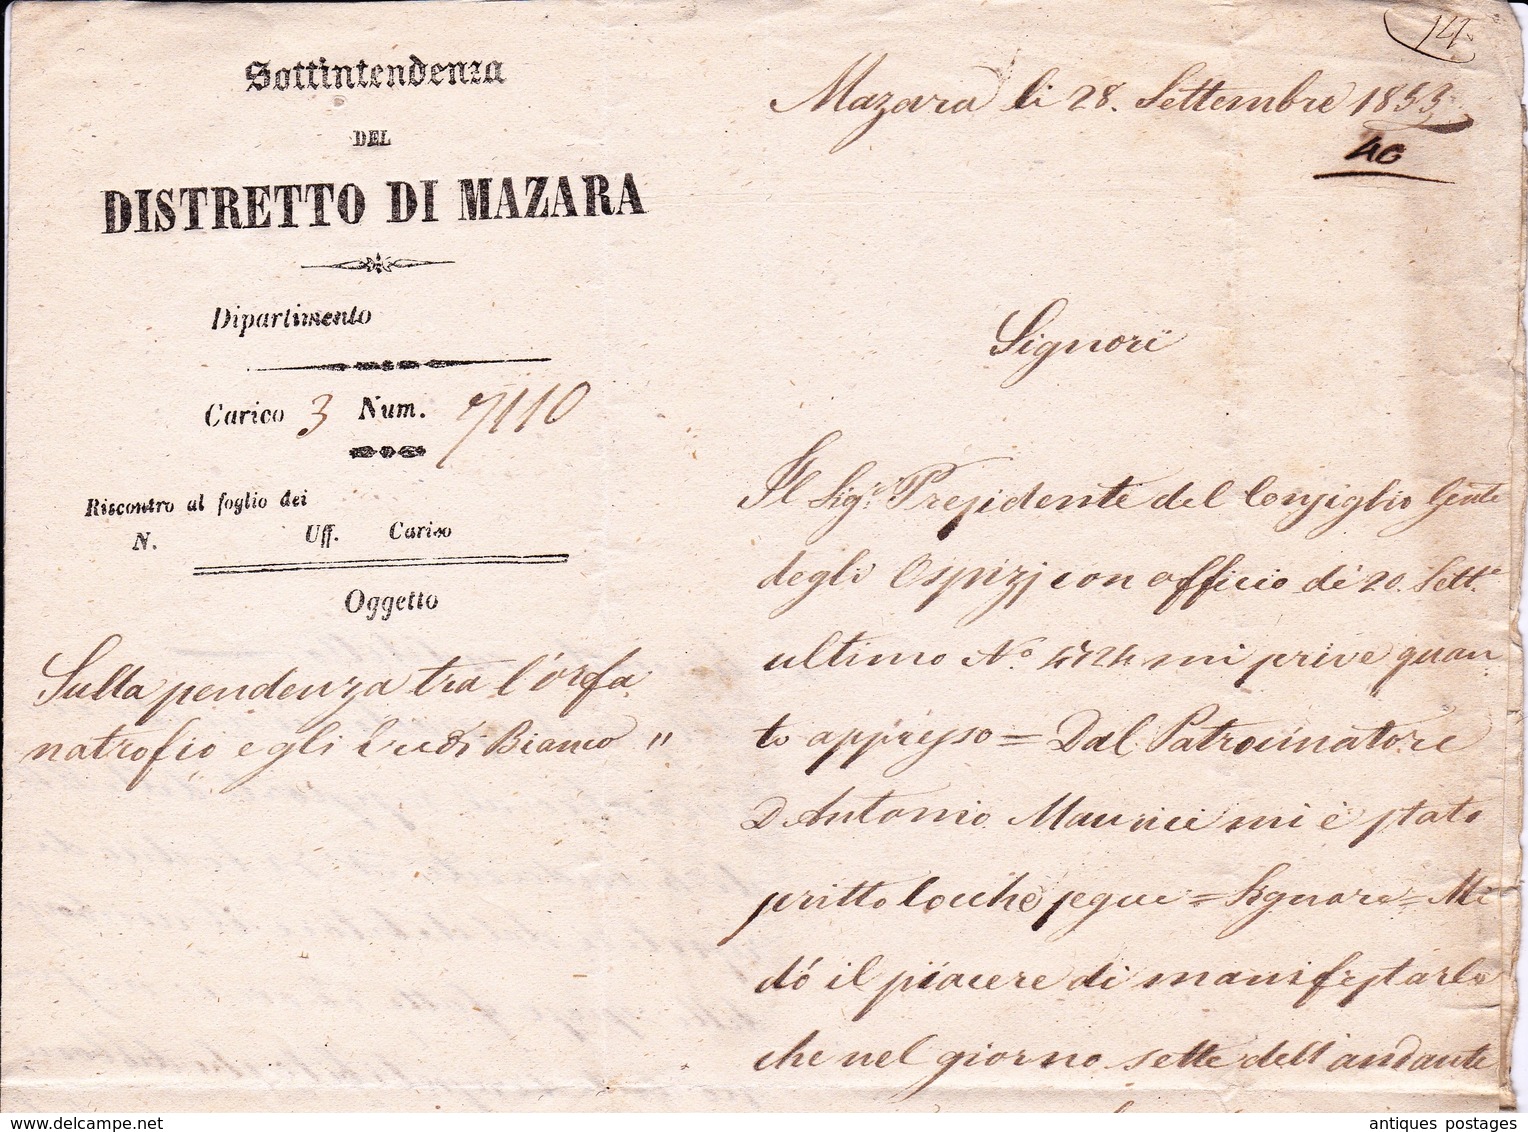 Sottintendenza
DEL
DISTRETTO DI MAZARA
Dipartimento
Carico 3 Num. 7110
Riscontro al foglio dei
N. Uff. Carico
Oggetto
Sulla pendenza tra l'orfa
natrofio e gli Eredi Bianco "
Mazara li 28. Settembre 1853
40
Signori
Il Sig.r Presidente del Consiglio Gen.le
degli Ospizj con officio de' 20. Sett.e
ultimo N.o 4724 mi scrive quan
to appresso = Dal Patrocinatore
D. Antonio Maurici mi è stato
scritto locchè segue = Signore = Mi
dó il piacere di manifestarle
che nel giorno sette dell'andante
antiques postages